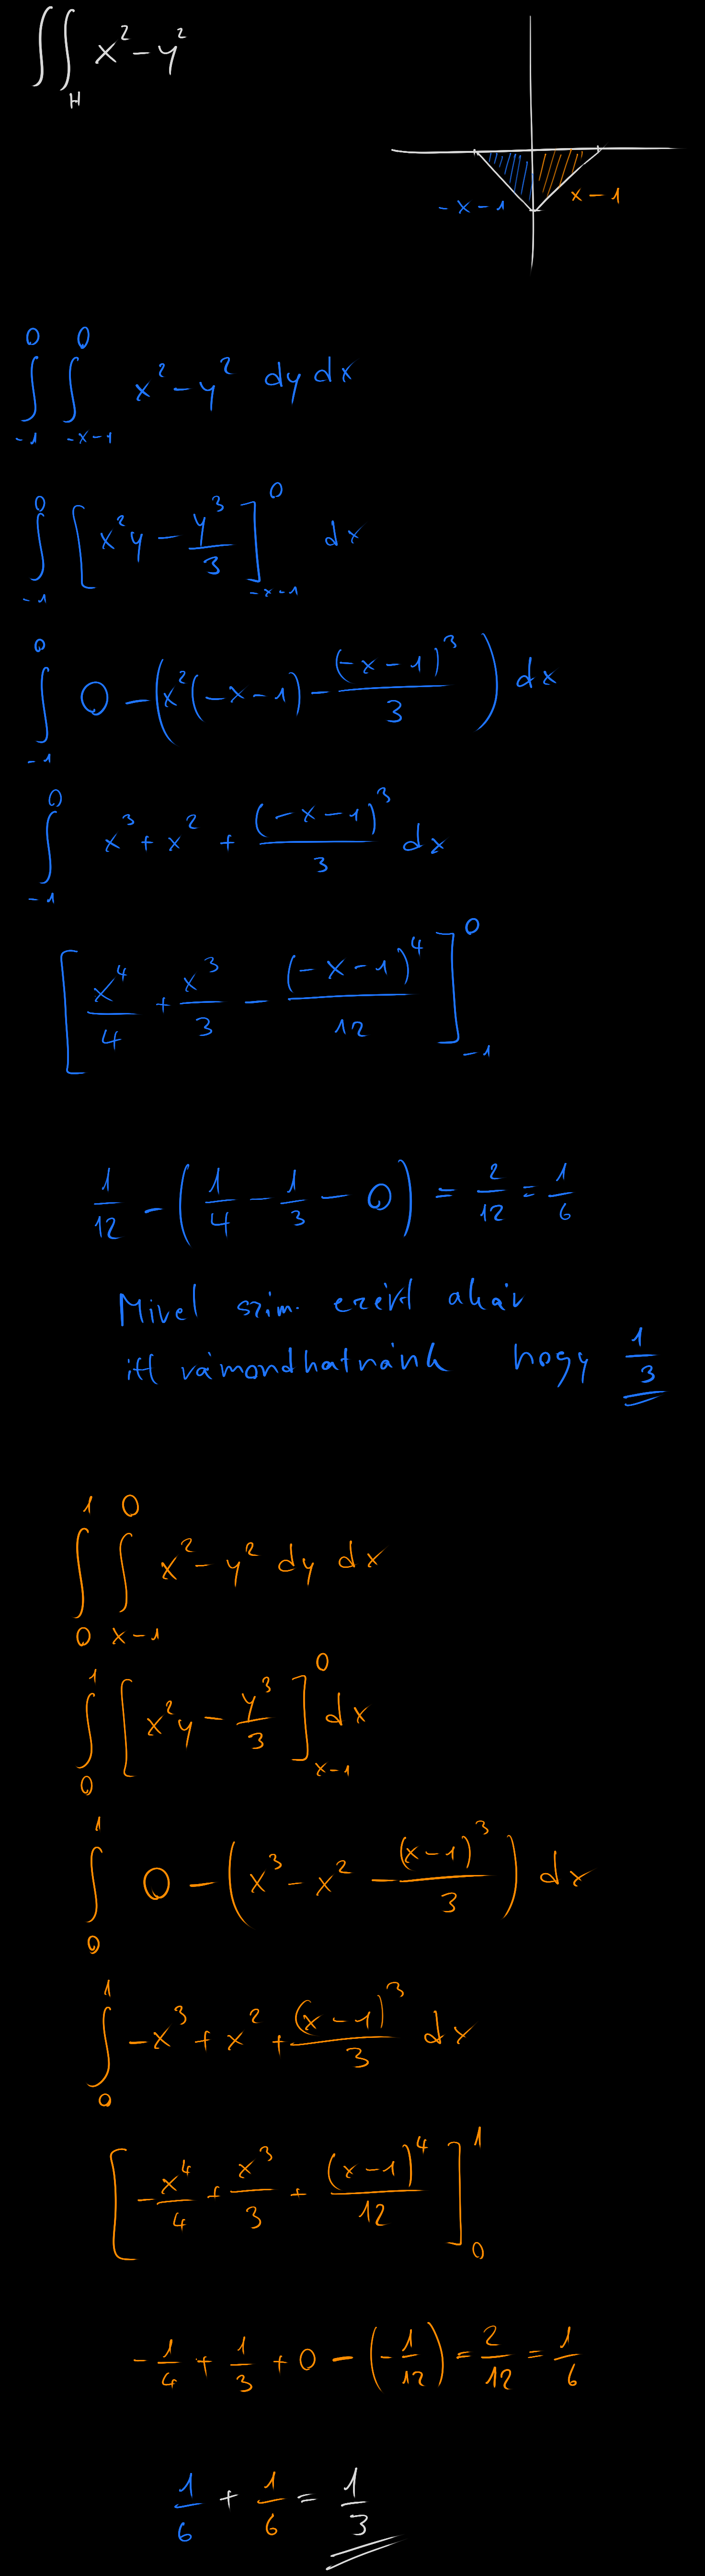 ∬_H x² − y²
−x−1
x−1
∫_{−1}^{0} ∫_{−x−1}^{0} x² − y² dy dx
∫_{−1}^{0} [x²y − y³/3]_{−x−1}^{0} dx
∫_{−1}^{0} 0 − (x²(−x−1) − (−x−1)³/3) dx
∫_{−1}^{0} x³ + x² + (−x−1)³/3 dx
[x⁴/4 + x³/3 − (−x−1)⁴/12]_{−1}^{0}
1/12 − (1/4 − 1/3 − 0) = 2/12 = 1/6
Mivel szim. ezért akár
itt rámondhatnánk hogy 1/3
∫_{0}^{1} ∫_{x−1}^{0} x² − y² dy dx
∫_{0}^{1} [x²y − y³/3]_{x−1}^{0} dx
∫_{0}^{1} 0 − (x³ − x² − (x−1)³/3) dx
∫_{0}^{1} −x³ + x² + (x−1)³/3 dx
[−x⁴/4 + x³/3 + (x−1)⁴/12]_{0}^{1}
−1/4 + 1/3 + 0 − (−1/12) = 2/12 = 1/6
1/6 + 1/6 = 1/3